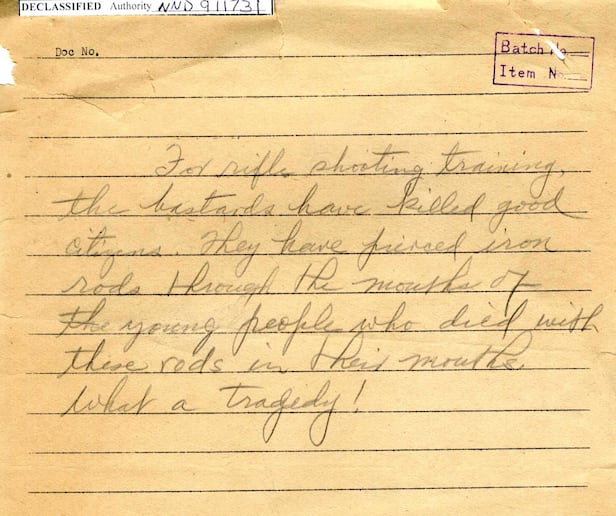 DECLASSIFIED Authority NND 911731
Doc No.
Batch No.
Item No.
For rifle shooting training,
the bastards have killed good
citizens. They have pierced iron
rods through the mouths of
the young people who died with
these rods in their mouths.
What a tragedy!